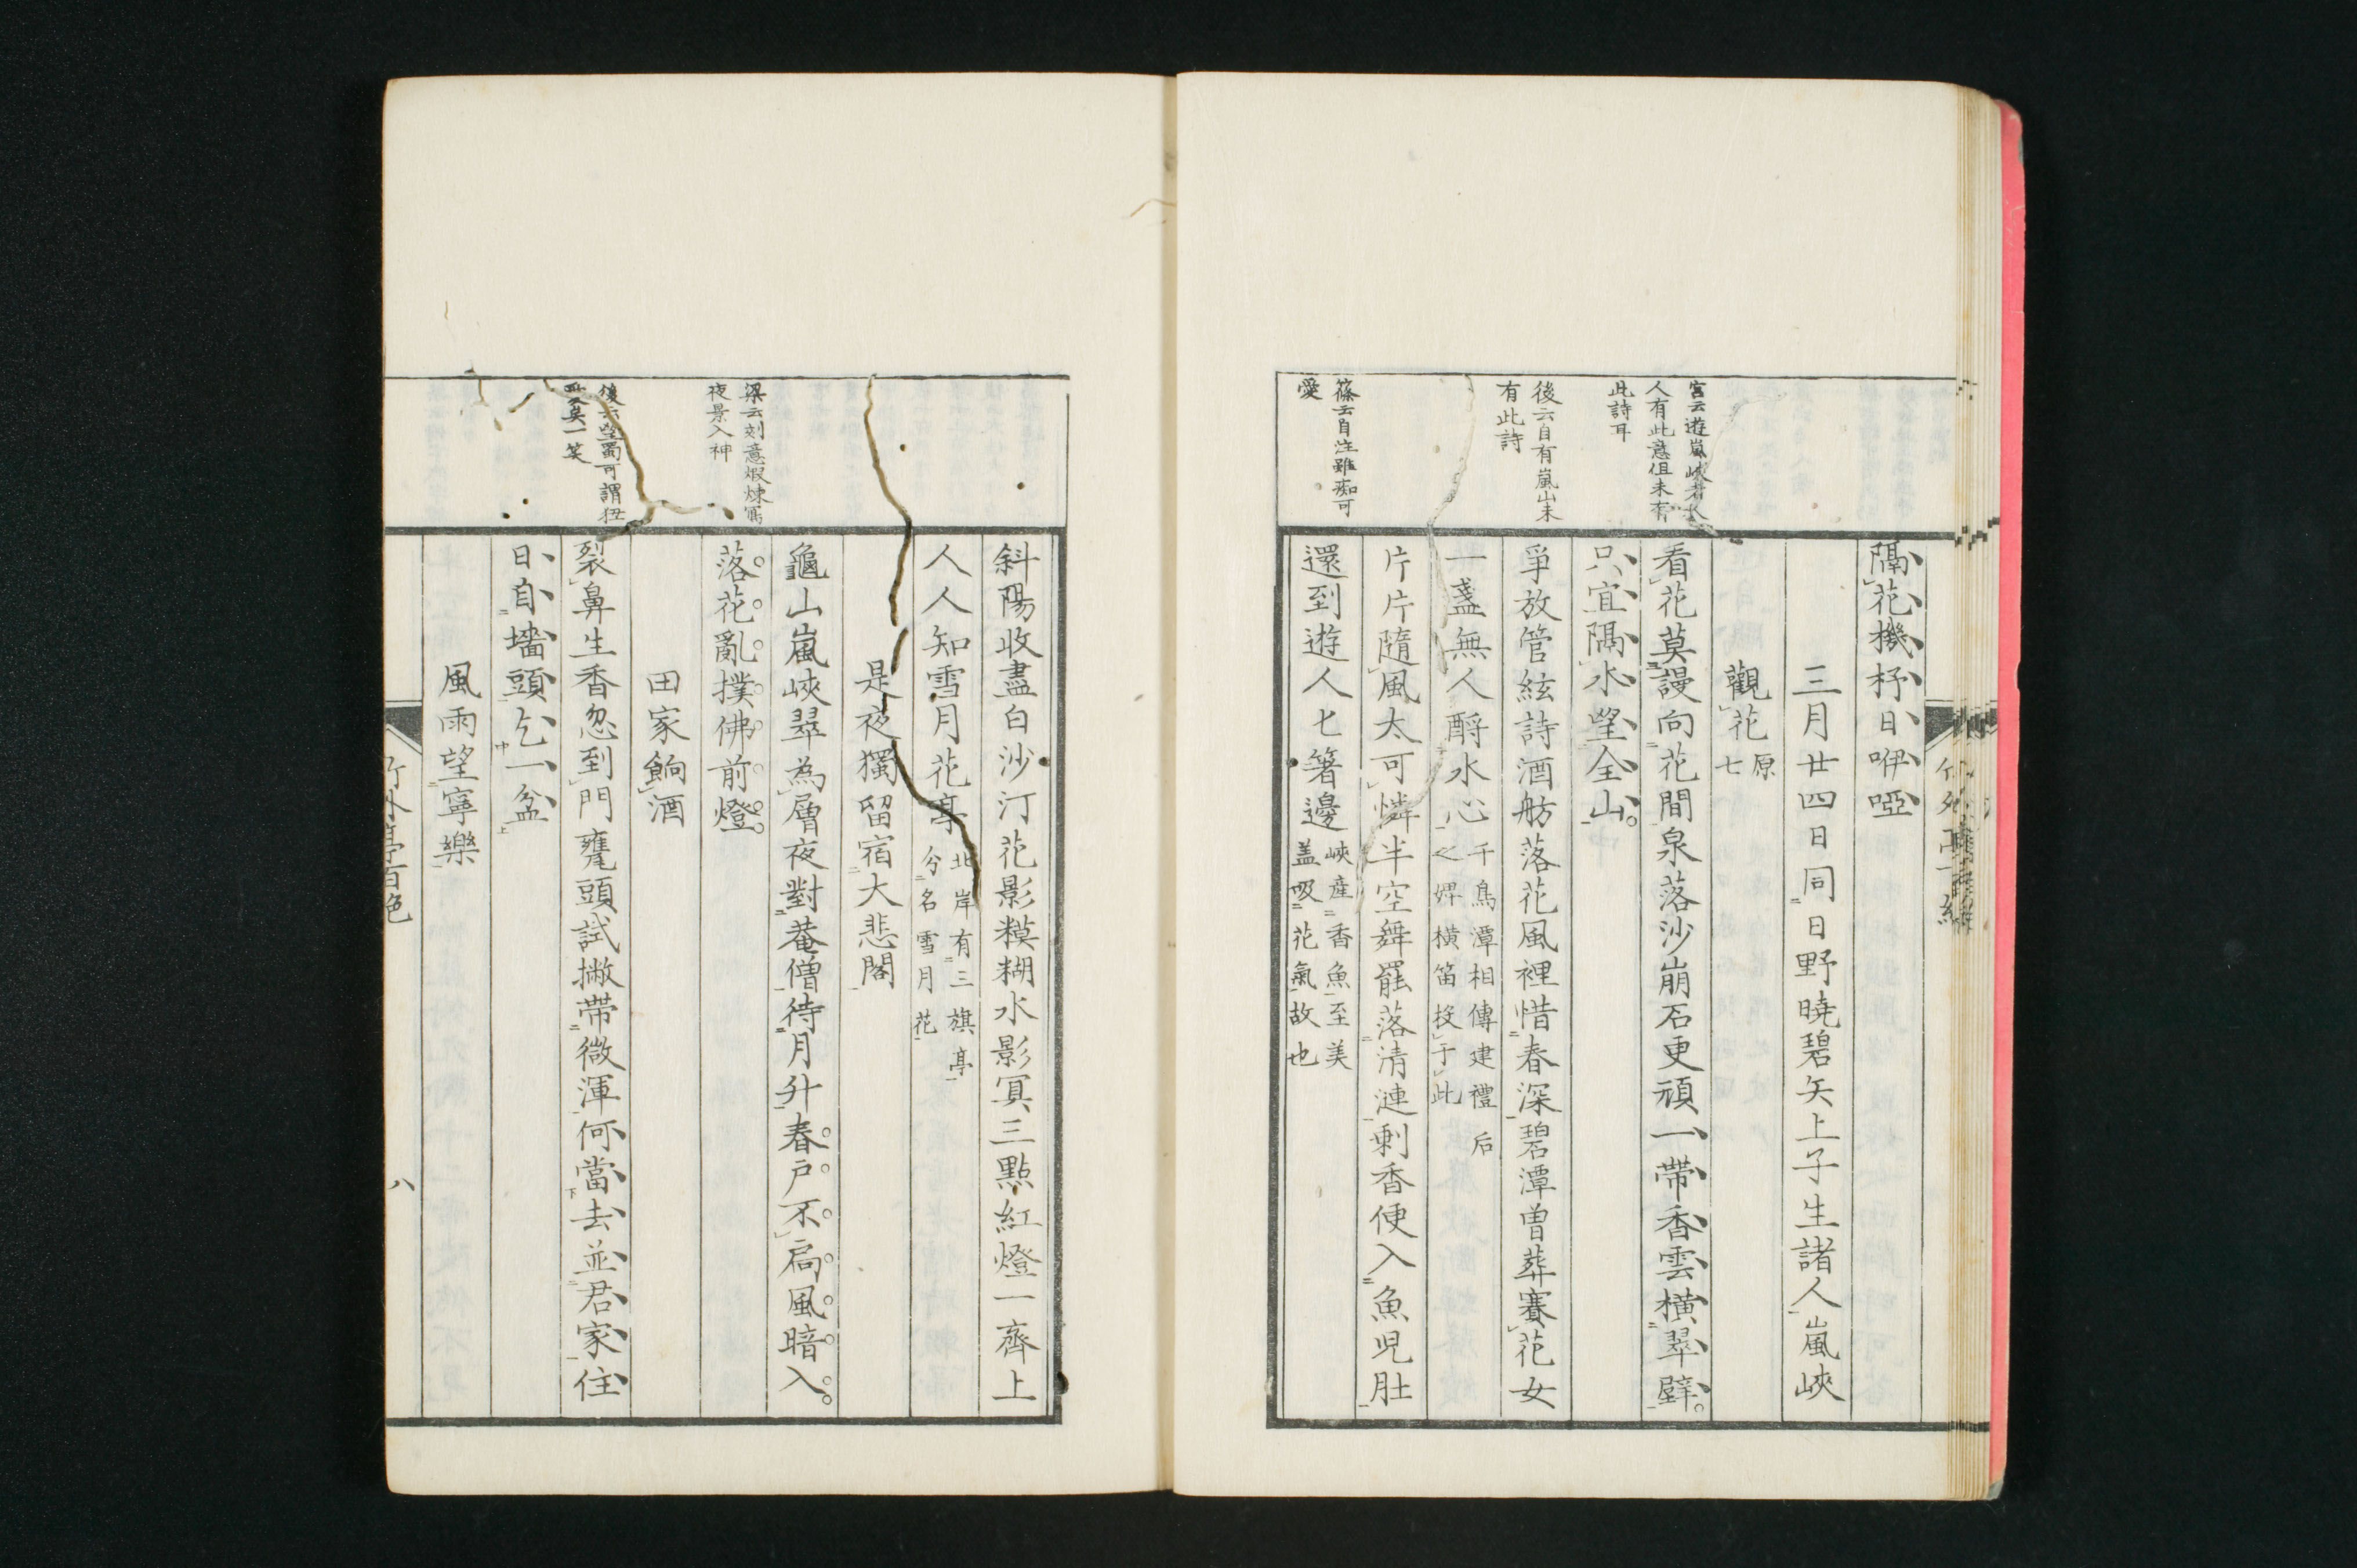 隔花機杼日咿啞
三月廿四日同日野曉碧矢上子生諸人嵐峽
觀花原七
看花莫謾向花間泉落沙崩石更頑一帶香雲橫翠壁
只宜隔水望全山
爭放管絃詩酒舫落花風裡惜春深碧潭曽葬賽花女
一盞無人酹水心千鳥潭相傳建禮后
之婢橫笛投于此
片片隨風太可憐半空舞罷落清漣剰香便入魚児肚
還到遊人匕箸邊峽產香魚至美
盖吸花氣故也
宮云遊嵐峽者
人有此意但未有
此詩耳
後云自有嵐山未
有此詩
篠云自注雖痴可
愛
斜陽收盡白沙汀花影糢糊水影冥三點紅燈一齊上
人人知雪月花亭北岸有三旗亭
分名雪月花
是夜獨留宿大悲閣
龜山嵐峽翠為層夜對菴僧待月升春戸不扃風暗入
落花亂撲佛前燈
田家餉酒
裂鼻生香忽到門甕頭試撇帶微渾何當去並君家住
日自墻頭乞一盆
風雨望寧樂
梁云刻意煅煉寫
夜景入神
後云望蜀可謂狃
矣一笑
竹外亭百絶
八